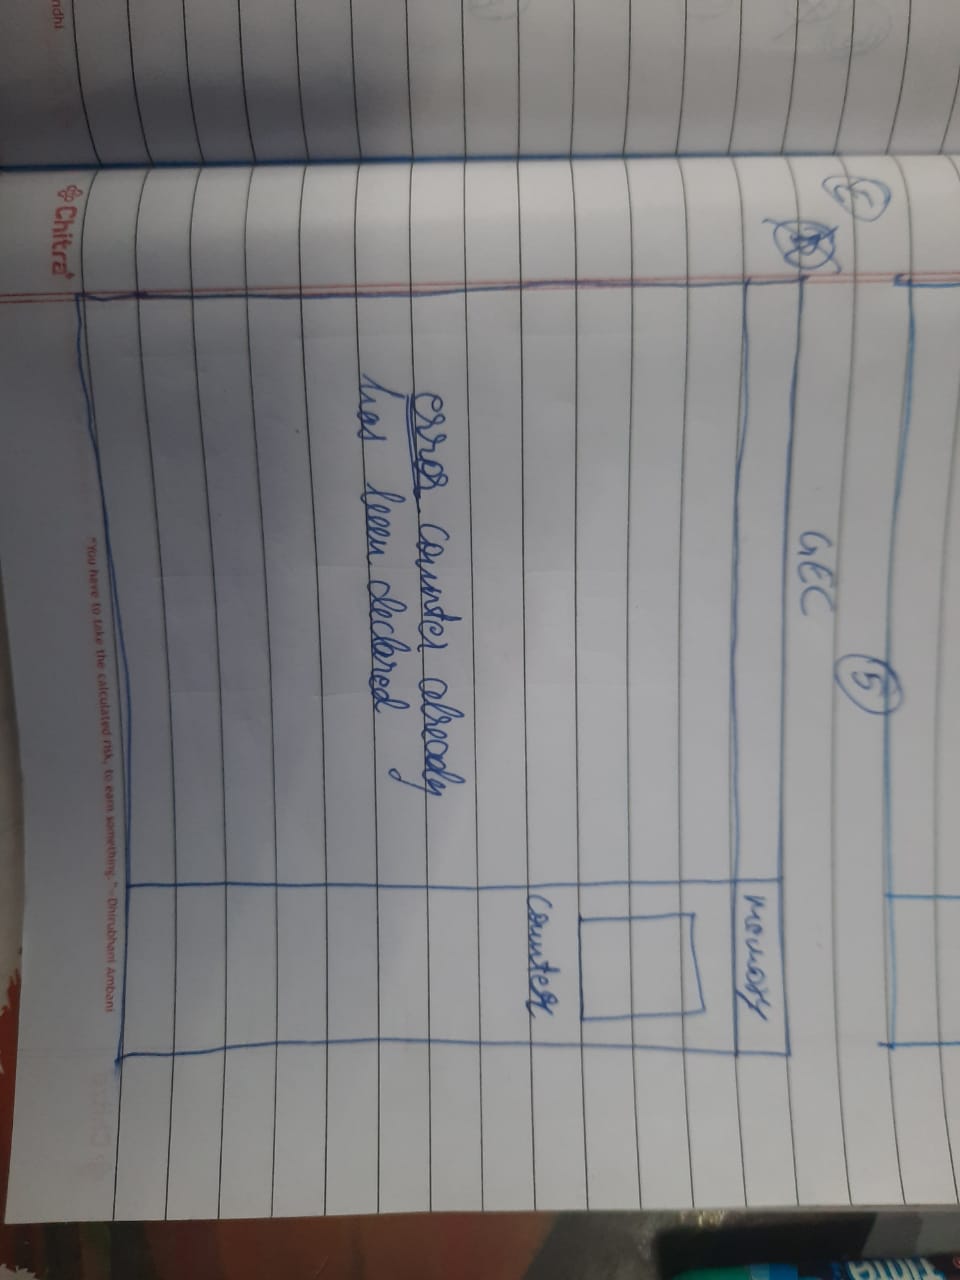 ndhi
5
GEC
memory
counter
error counter already
has been declared
Chitra
"You have to take the calculated risk, to earn something." - Dhirubhani Ambani